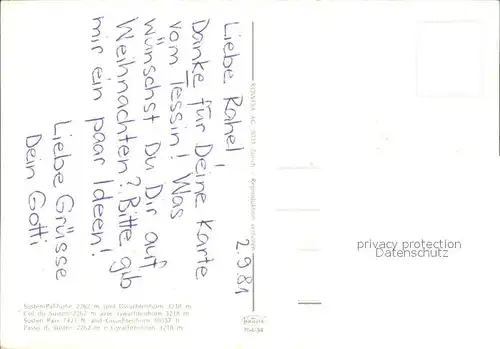 2.9.81
Liebe Rahel!
Danke für Deine Karte
vom Tessin! Was
wünschst Du Dir auf
Weihnachten? Bitte gib
mir ein paar Ideen!
Liebe Grüsse
Dein Gotti
Sustenpaßhöhe 2262 m und Gwächtenhorn 3218 m
Col du Susten 2262 m avec Gwächtenhorn 3218 m
Susten Pass and Gwächtenhorn
Passo di Susten 2262 m e Gwächtenhorn 3218 m
privacy protection
Datenschutz